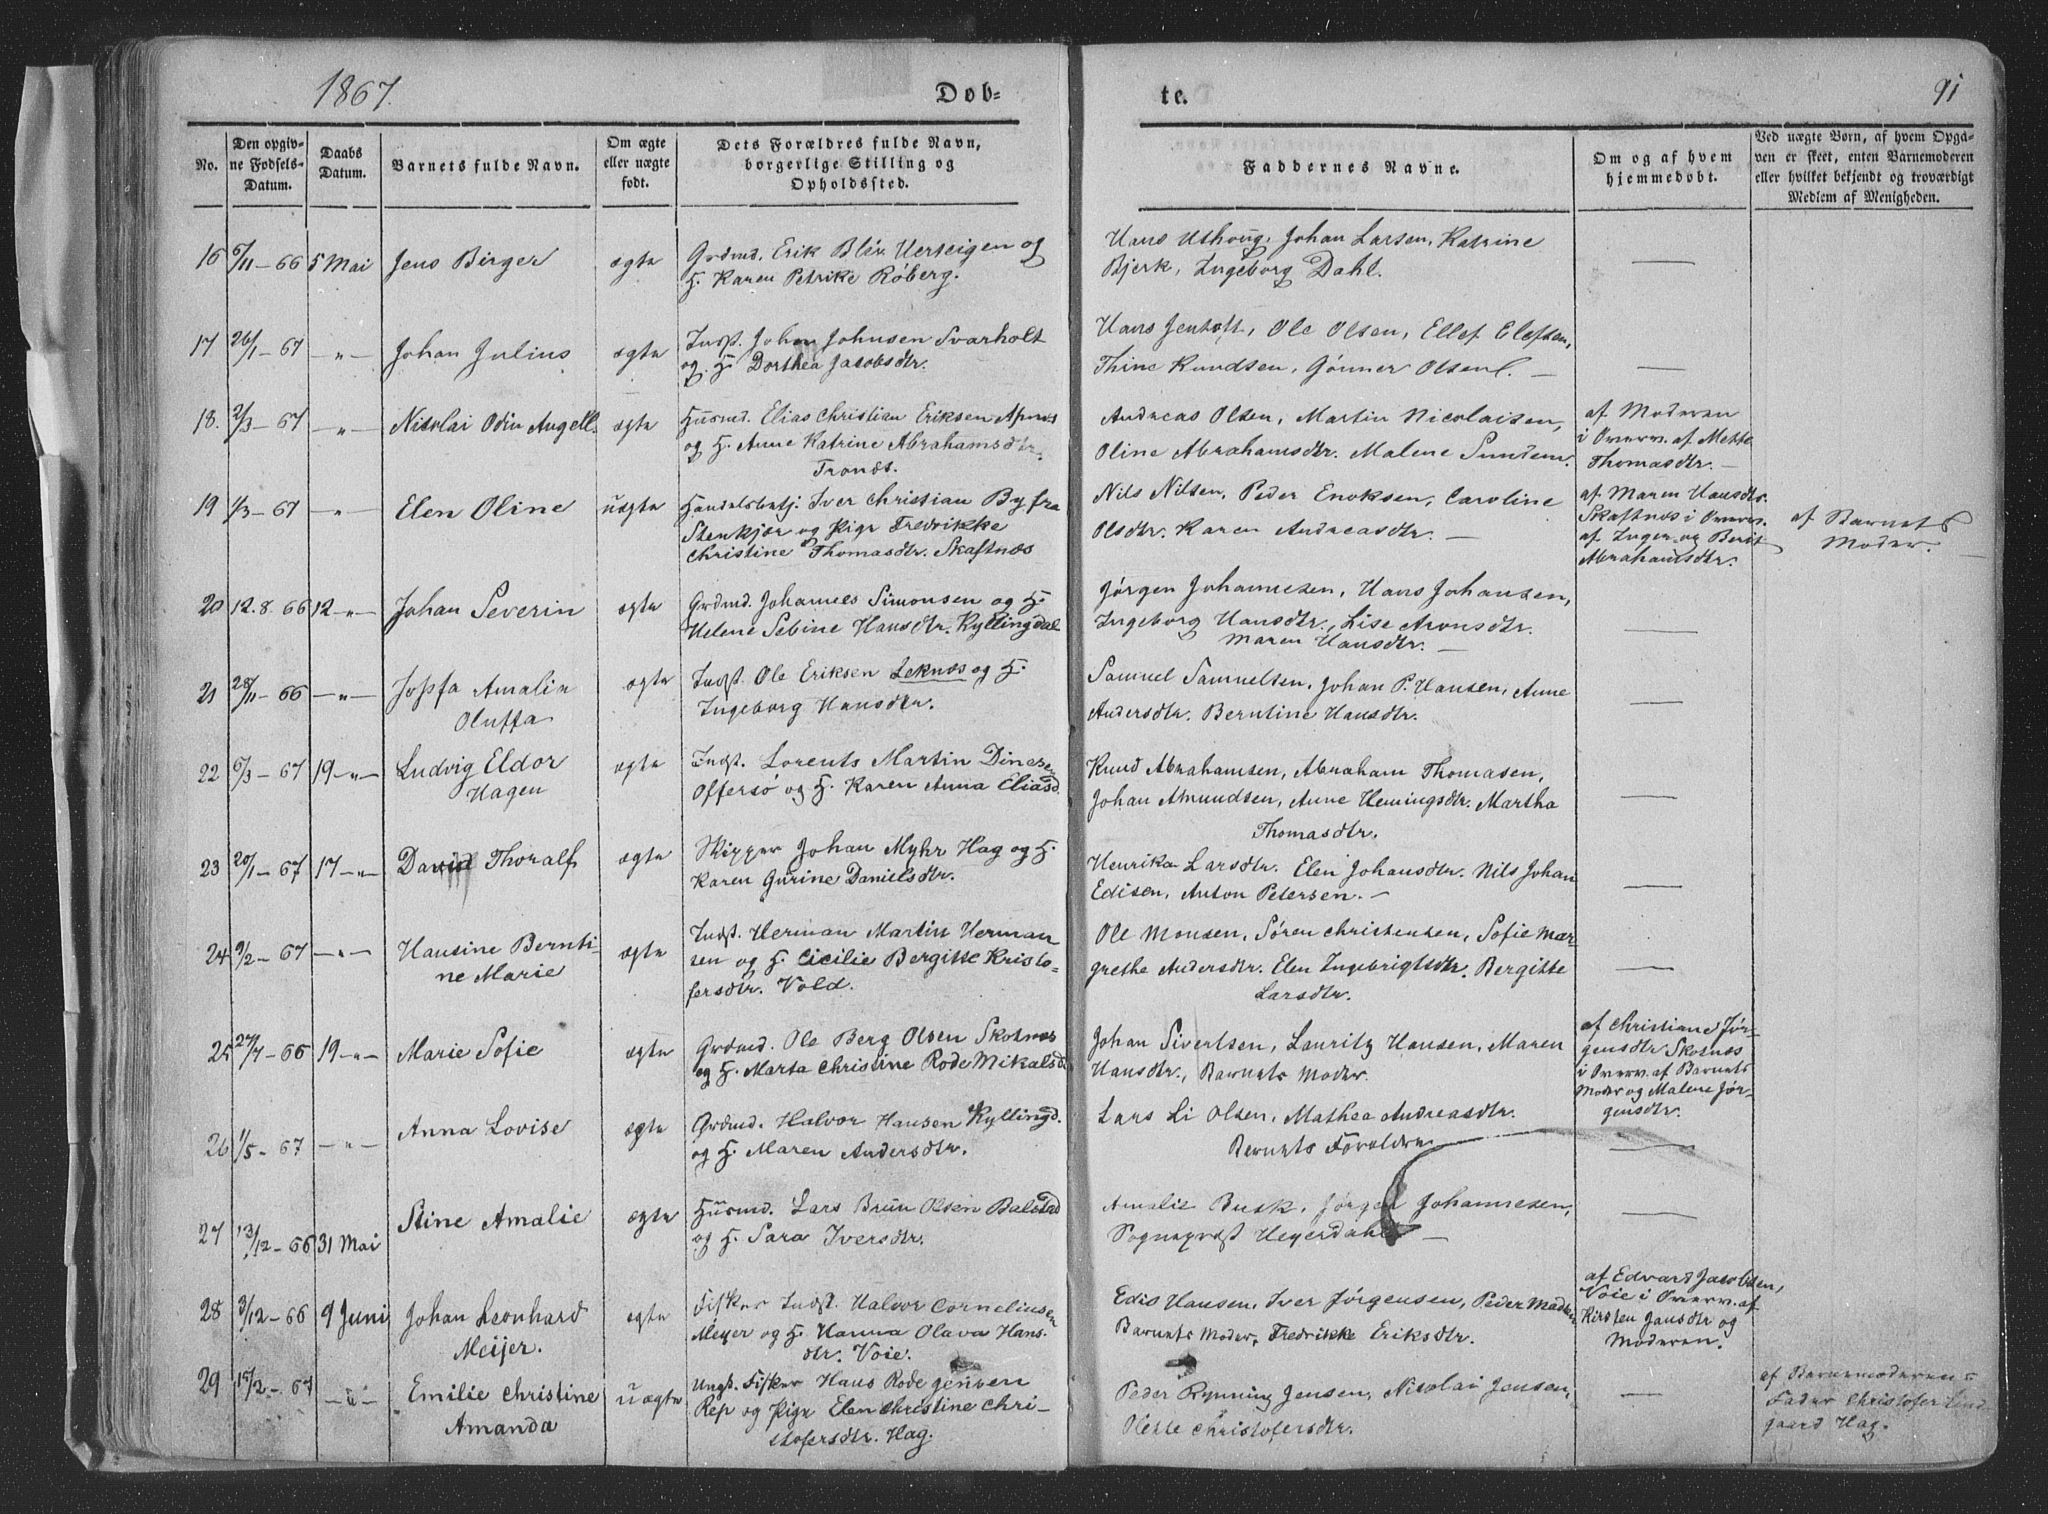 1867.
Døb-
te.
91
No.
Den opgiv-
ne Fødsels-
Datum.
Daabs
Datum.
Barnets fulde Navn.
Om ægte
eller uægte
født.
Dets Forældres fulde Navn,
borgerlige Stilling og
Opholdssted.
Faddernes Navne.
Om og af hvem
hjemmedøbt.
Ved uægte Børn, af hvem Opga-
ven er skeet, enten Barnemoderen
eller hvilket bekjendt og troværdigt
Medlem af Menigheden.
16 6/11-66 5 Mai Jens Birger ægte
Grdmd. Erik Blix og
H. Karen Petrike Røberg.
Hans Uthoug, Johan Larsen, Katrine
Bjerk, Ingeborg Dahl. —
17 26/1-67 -"- Johan Julius ægte
Indst. Johan Johnsen Svarholt
og H. Dorthea Jacobsdtr.
Hans Jentoft, Ole Olsen, Ellef Elefsen,
Thine Knudsen, Gønner Olsen. —
18. 2/3-67 -"- Nikolai Odin Angell. ægte
Husmd. Elias Christian Eriksen
og H. Anne Katrine Abrahamsdtr.
Tronæs.
Andreas Olsen, Martin Nicolaisen,
Oline Abrahamsdtr. Malene
af Moderen
i Overv. af Mette
Thomasdtr. —
19 1/3-67 -"- Elen Oline uægte
Handelsbetj. Iver Christian By fra
Stenkjær og Pige Fredrikke
Christine Thomasdtr. Skaftnæs
Nils Nilsen, Peder Enoksen, Caroline
Olsdtr. Karen Andreasdtr. —
af Maren Hansdtr.
Skaftnæs i Overv.
af Inger og Berit
Abrahamsdtr.
af Barnets
Moder. —
20 12.8.66 12 -"- Johan Severin ægte
Grdmd. Johannes Simonsen og H.
Helene Sebine Hansdtr. Kyllingdal
Jørgen Johannesen, Hans Johansen,
Ingeborg Hansdtr., Lise Aronsdtr.
Maren Hansdtr. —
21 28/11-66 -"- Josefa Amalia
Oluffa
ægte
Indst. Ole Eriksen Leknæs og H.
Ingeborg Hansdtr.
Samuel Samuelsen, Johan P. Hansen, Anne
Andersdtr. Berntine Hansdtr. —
22 6/3-67 19 -"- Ludvig Eldor
Hagen
ægte
Indst. Lorents Martin Dinese
Offersø og H. Karen Anna Eliasd
Knud Abrahamsen, Abraham Thomasen,
Johan Amundsen, Anne Hemingsdtr. Martha
Thomasdtr. —
23 20/1-67 17 -"- David Thoralf ægte
Skipper Johan Myhr Hag og H.
Karen Gurine Danielsdtr.
Henrika Larsdtr. Elen Johansdtr. Nils Johan
Edisen, Anton Petersen. —
24 9/2-67 -"- Hansine Bernti-
ne Marie
ægte
Indst. Herman Martin Herman
sen og H. Cicilie Bergitte Kristo-
fersdtr. Vold.
Ole Monsen, Søren Christensen, Sofie Mar-
grethe Andersdtr. Elen Ingebrigtsdtr. Bergitte
Larsdtr. —
25 27/7-66 19 -"- Marie Sofie ægte
Grdmd. Ole Berg Olsen Skotnæs
og H. Marta Christine Rode Mikalsd
Johan Sivertsen, Lauritz Hansen, Maren
Hansdtr., Barnets Moder.
af Christiane Jør-
gensdtr Skotnæs
i Overv. af Barnets
Moder og Malene Jør-
gensdtr.
26 1/5-67 -"- Anna Lovise ægte
Grdmd. Halvor Hansen Kyllingd.
og H. Maren Andersdtr.
Lars Li Olsen, Mathea Andreasdtr.
Barnets Forældre —
27 13/12-66 31 Mai Stine Amalie ægte
Husmd. Lars Brun Olsen Balstad
og H. Sara Iversdtr.
Amalie Busk, Jørgen Johannesen,
Sogneprest Heyerdahl —
28 3/12-66 9 Juni Johan Leonhard
Meijer.
ægte
Fisker Indst. Halvor Corneliusen
Meyer og H. Hanna Olava Hans-
dtr. Voie.
Edis Hansen, Iver Jørgensen, Peder Madsen
Barnets Moder, Fredrikke Eriksdtr.
af Edvard Jacobsen,
Voie i Overv. af
Kirsten Jansdtr og
Moderen.
29 15/2-67 -"- Emilie Christine
Amanda
uægte
Ungk. Fisker Hans Rode Jensen
Rep og Pige Elen Christine Chri-
stofersdtr. Hag.
Peder Rynning Jensen, Nicolai Jensen,
Mette Christofersdtr. —
af Barnemoderens
Fader Christofer Lind-
gaard Hag.